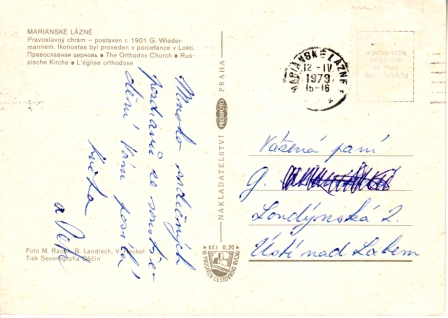 MARIÁNSKÉ LÁZNĚ
Pravoslavný chrám – postaven r. 1901 G. Wieder-
mannem. Ikonostas byl proveden v porcelánce v Lokti.
Православная церковь ● The Orthodox Church ● Rus-
sische Kirche ● L'église orthodoxe
Mnoho srdečných
pozdravů ze
Vám posílá
a
Foto M. B. Landisch, V.
Tisk Severografia Děčín
NAKLADATELSTVÍ PRESSFOTO PRAHA
Kčs 0,70
VE PROSPĚCH CESTOVNÍHO RUCHU
MARIÁNSKÉ LÁZNĚ
12.-IV.
1973
15-16
Vážená paní
G.
Londýnská 2
Ústí nad Labem